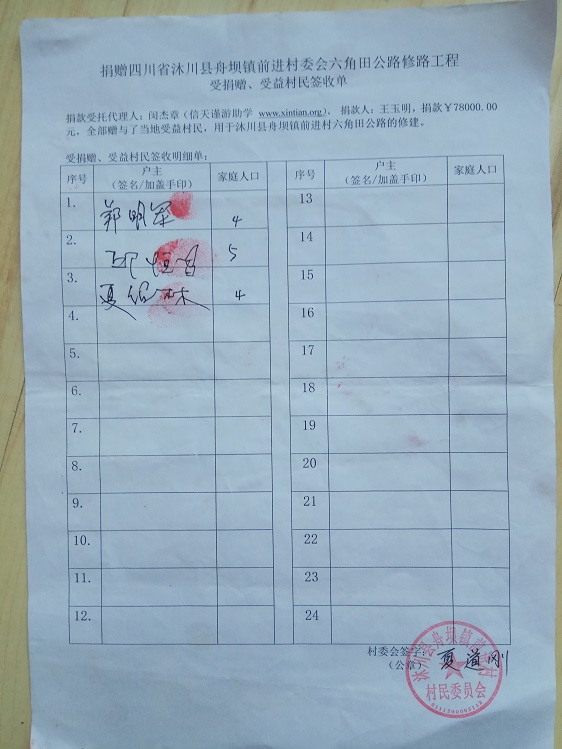 捐赠四川省沐川县舟坝镇前进村委会六角田公路修路工程
受捐赠、受益村民签收单
捐款受托代理人：闵杰章（信天谨游助学 www.xintian.org）， 捐款人：王玉明，捐款￥78000.00
元，全部赠与了当地受益村民，用于沐川县舟坝镇前进村六角田公路的修建。
受捐赠、受益村民签收明细单：
序号 户主（签名/加盖手印） 家庭人口 序号 户主（签名/加盖手印） 家庭人口
1. 郑明军 4 13
2. 5 14
3. 夏绍林 4 15
4. 16
5. 17
6. 18
7. 19
8. 20
9. 21
10. 22
11. 23
12. 24
村委会签字： 夏道刚
（公章）
沐川县舟坝镇前进村
村民委员会